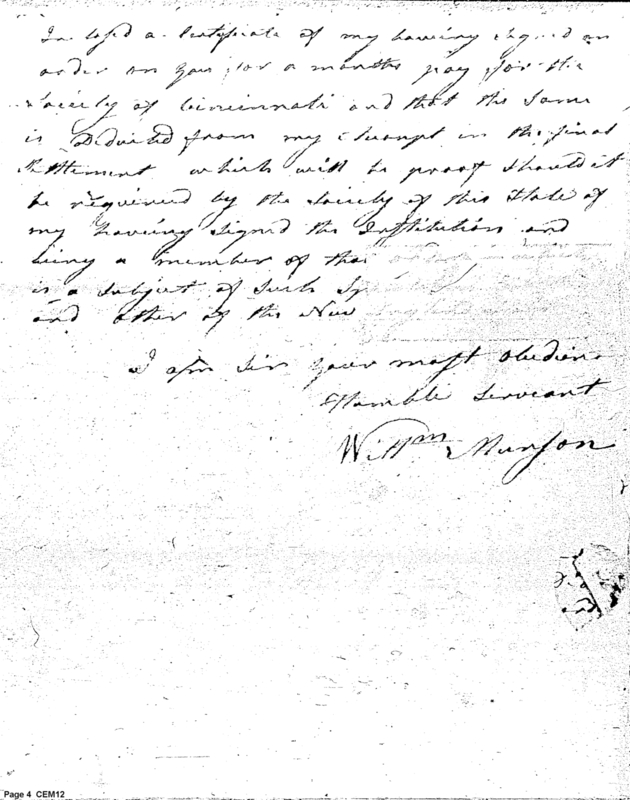 Inclosed a Certificate of my having signed an
order on you for a months pay for the
Society of Cincinnati and that the same
is Deducted from my accompt in the final
Settlement which will be proof should it
be required by the Society of this State of
my having signed the Institution and
being a member of that
is a subject of such
and other of the New
I am Sir your most Obedien
Humble Servant
Willm Munson
Page 4 CEM12